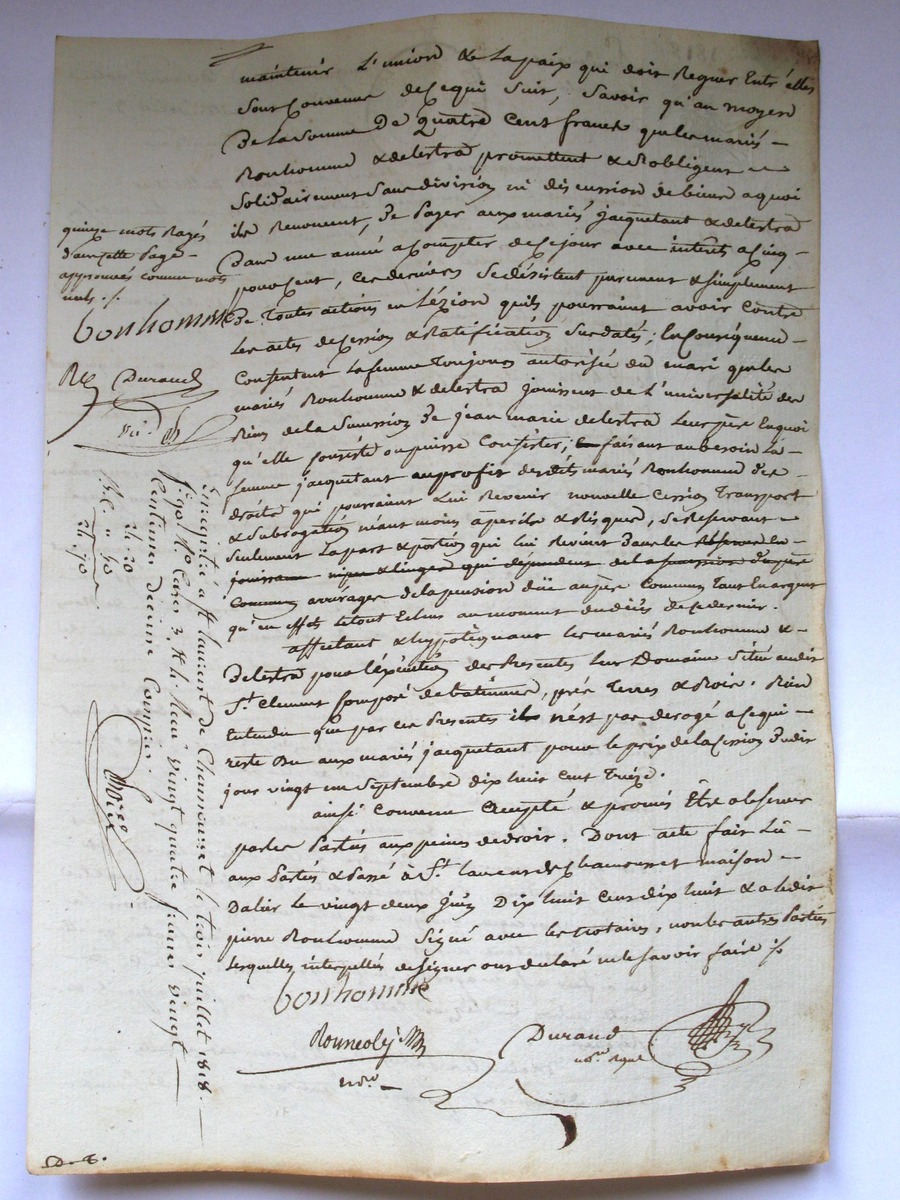 maintenir L'union & La paix qui doit Regner Entr'elles
sont Convenue de Ce qui Suit, Savoir qu'au moyen
De la Somme De Quatre Cent francs que les mariés -
Bonhomme & delestra promettent & S'obligent -
Solidairement Sans division ni discussion de biens a quoi
ils Renoncent, De Payer aux mariés jacquetant & delestra
Dans une année a Compter de Ce jour avec intérêts a Cinq -
pour Cent, Ces derniers Se désistent purement & Simplement
De Toutes actions en Lézion qu'ils pourraint avoir Contre
Les actes de Cession & Ratification Susdatés; En Conséquence -
Consentent La femme Toujours autorisée du mari que les
mariés Bonhomme & delestra jouissent de L'universalité des
Biens de la Succession De jean marie delestra Leur père En quoi
qu'elle Consiste ou puisse Consister; faisant au besoin La
femme jacquetant au profit desdits mariés Bonhomme des
droits qui pourraint Lui Revenir nouvelle Cession Transport
& Subrogation néant moins a périls & Risques, Se Réservant -
Seulement La part & portion qui lui Revient Dans les
jouissance
Commun arrérages de la pension düe au père Commun Tant En argent
qu'en effets le tout Echus au moment du décès de Ce dernier.
affectant & hypotéquant Les mariés Bonhomme & -
Delestra pour L'éxécution des Présentes Leur Domaine Situé audit
St. Clement Composé de batimens, prés Terres & Bois. Bien
Entendu que par Ces Présentes il n'est pas derogé a Ce qui -
reste Du aux mariés jacquetant pour le prix de la Cession Dudit
jour vingt un Septembre dix huit Cent Treize.
ainsi Convenu accepté & promis Être observer
par les Parties aux peines de droit. Dont acte fait Lû -
aux Parties & Passé à St. Laurent de Chamousset maison -
Dalier le vingt deux juin Dix huit Cent dix huit & a ledit
pierre Bonhomme Signé avec les Notaires, non les autres Parties
Lesquelles interpellés de signer ont déclaré ne le Savoir faire ./.
bonhomme
Durand
quinze mots Rayés
dans cette Page -
approuvés comme mots
nuls ./.
bonhomme
Durand
Enregistré a St Laurent de Chamousset le trois juillet 1818. -
Reçu vingt quatre francs vingt
Centimes décime Compris.
22. "
2. 20
24. 20